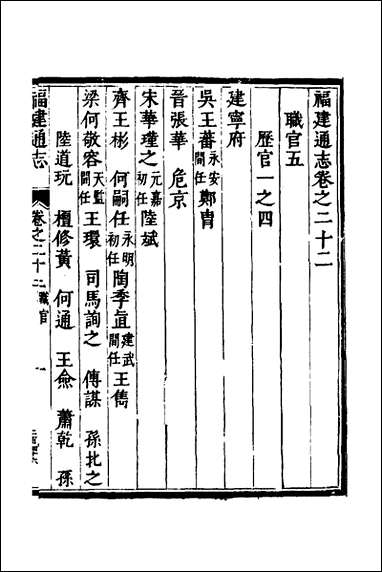 福建通志卷之二十二
職官五
歷官一之四
建寧府
吳王蕃永安間任鄭胄
晉張華 危京
宋華瑾之元嘉初任陸斌
齊王彬 何嗣任永明初任陶季直建武間任王儁
梁何敬容天監間任王環 司馬詢之 傅謀 孫玭之
陸道玩 檀修黃 何通 王僉 蕭乾 孫
福建通志
卷之二十二 職官
一